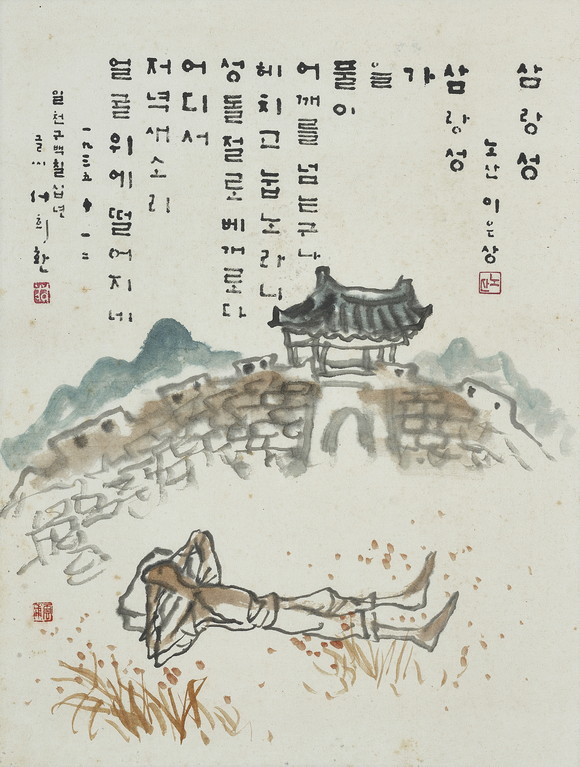 삼랑성
노산 이은상
삼랑성
가
을
풀이
어깨를 넘는구나
헤치고 눕노라니
성돌 절로 베개로다
어디서
저녁 새소리
얼굴 위에 떨어지네
一九三五 十 一二
일천구백칠십년
글씨 서희환
노산